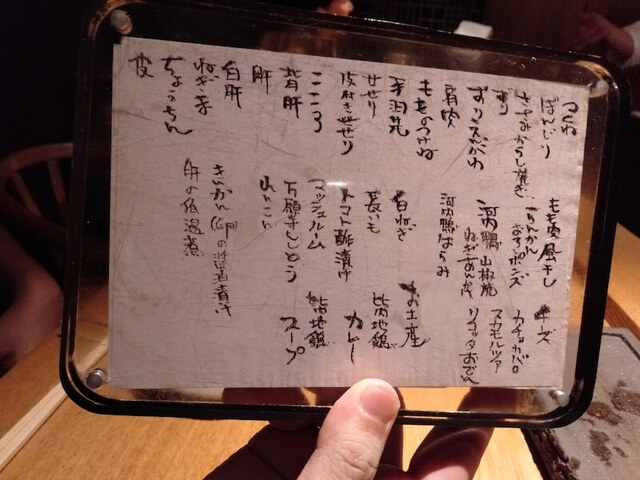 つくね
ぼんじり
ささみからし焼き
ずり
ずりこえがわ
肩肉
ももつけね
手羽先
せせり
皮付きせせり
こころ
背肝
肝
白肝
ねぎま
ちょうちん
皮
もも肉風干し
おろしポンズ
河内鴨 山椒焼
ねぎあんかけ
河内鴨はらみ
白ねぎ
長いも
トマト酢漬け
マッシュルーム
万願寺ししとう
れんこん
きんかん(卵)の醤油漬け
肝の低温煮
チーズ
カチョカバロ
スカモルツァ
リコッタおでん
お土産
比内地鶏
カレー
比内地鶏
スープ